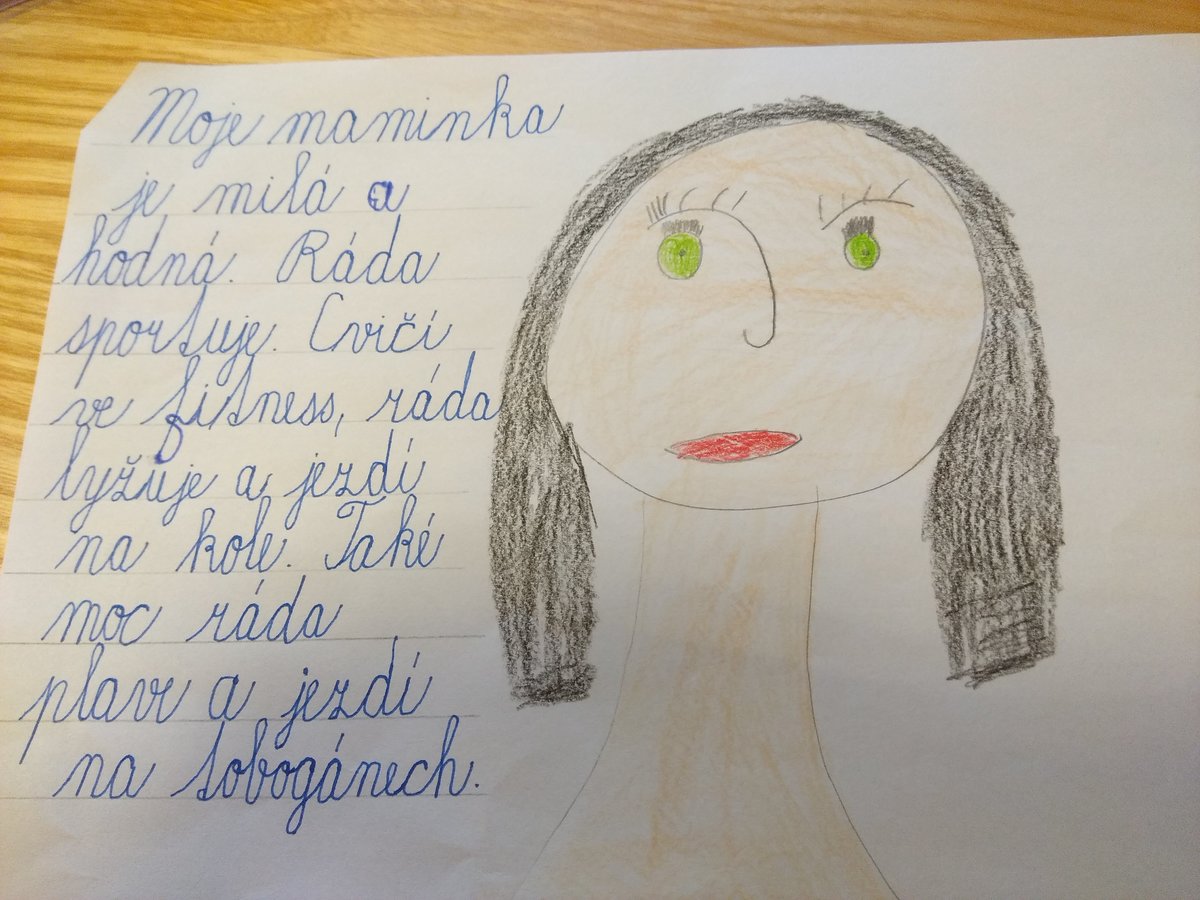 Moje maminka
je milá a
hodná. Ráda
sportuje. Cvičí
ve fitness, ráda
lyžuje a jezdí
na kole. Také
moc ráda
plave a jezdí
na tobogánech.